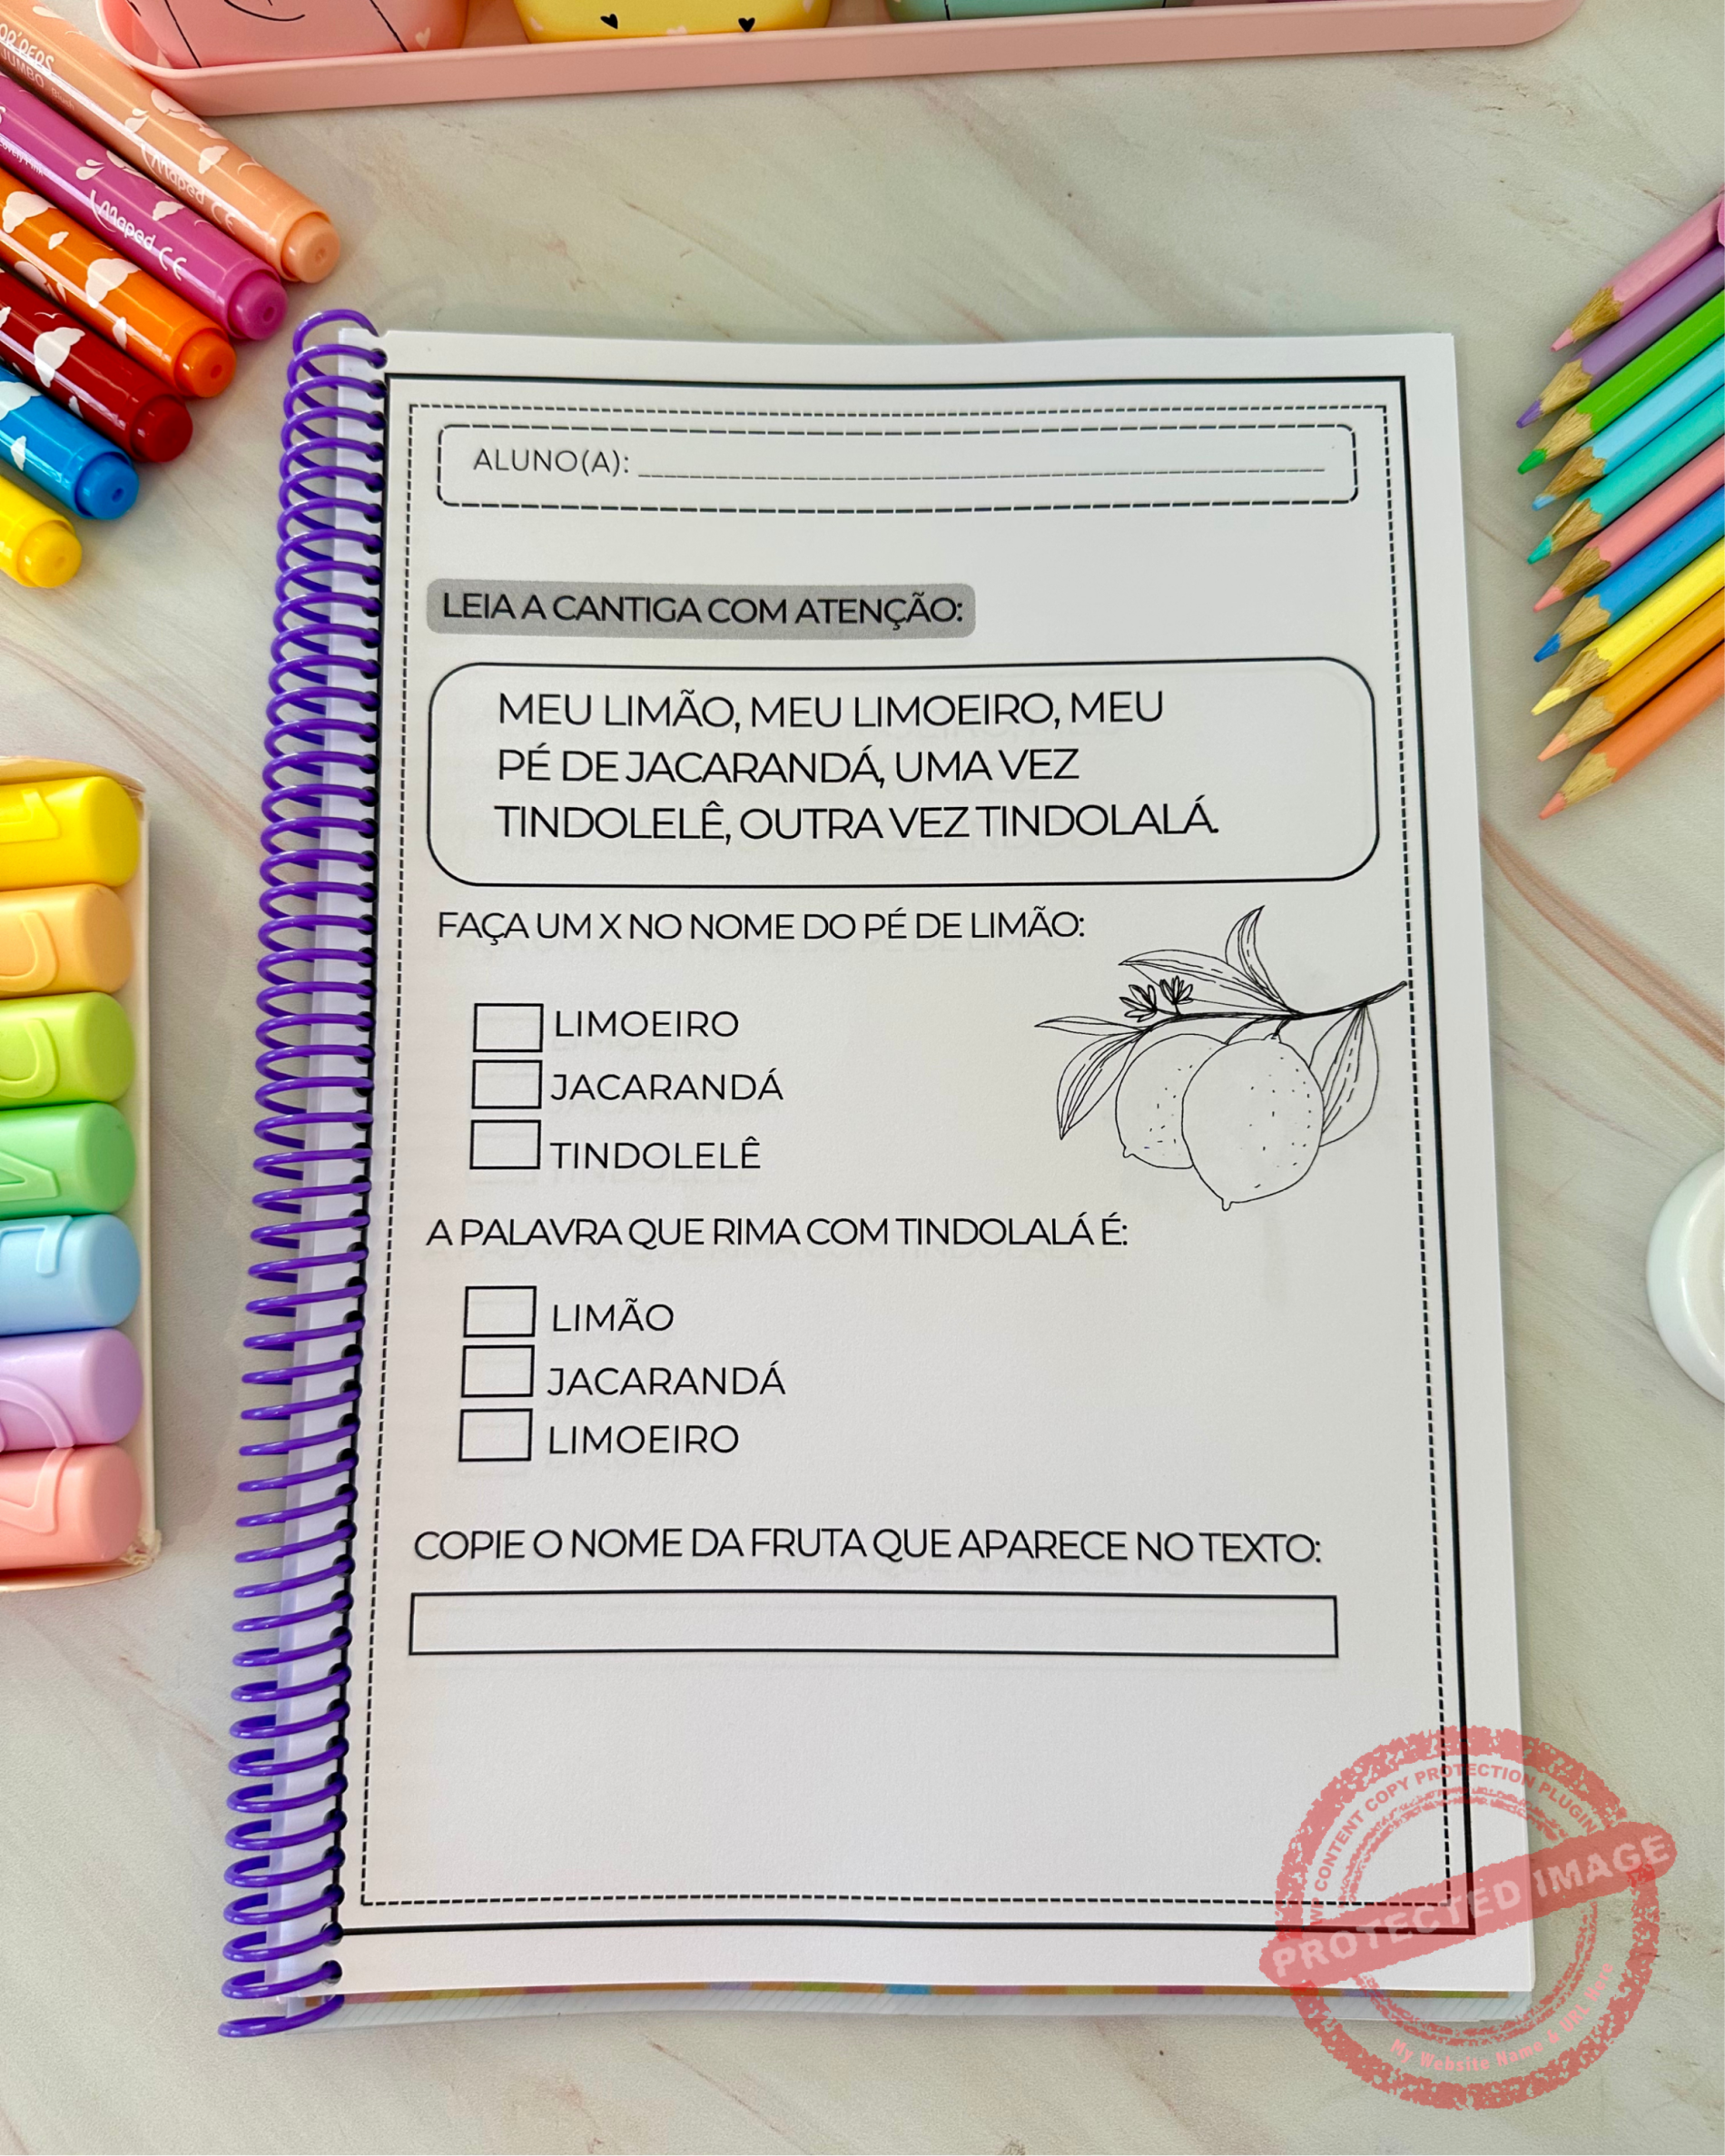 OR'PEPS
JUMBO
Maped CE
Maped CE
ALUNO(A):
LEIA A CANTIGA COM ATENÇÃO:
MEU LIMÃO, MEU LIMOEIRO, MEU
PÉ DE JACARANDÁ, UMA VEZ
TINDOLELÊ, OUTRA VEZ TINDOLALÁ.
FAÇA UM X NO NOME DO PÉ DE LIMÃO:
LIMOEIRO
JACARANDÁ
TINDOLELÊ
A PALAVRA QUE RIMA COM TINDOLALÁ É:
LIMÃO
JACARANDÁ
LIMOEIRO
COPIE O NOME DA FRUTA QUE APARECE NO TEXTO:
WP CONTENT COPY PROTECTION PLUGIN
PROTECTED IMAGE
My Website Name & URL Here